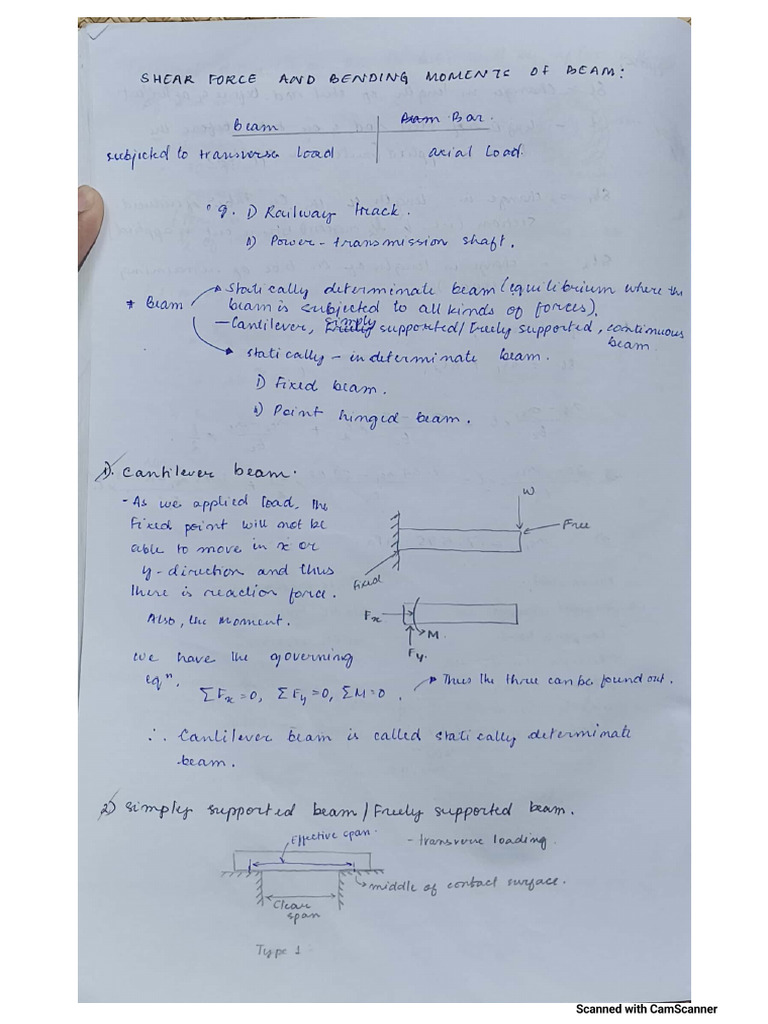 SHEAR FORCE AND BENDING MOMENTS OF BEAM:
Beam | Bar.
subjected to transverse load | axial load.
eg. 1) Railway track.
2) Power-transmission shaft.
* Beam → statically determinate beam (equilibrium where the
beam is subjected to all kinds of forces).
- Cantilever, simply supported/Freely supported, continuous
beam
→ statically - indeterminate beam.
1) Fixed beam.
2) Point hinged beam.
1). Cantilever beam.
- As we applied load, the
fixed point will not be
able to move in x or
y-direction and thus
there is reaction force.
Also, the moment.
W
Free
Fixed
Fx
M
Fy.
We have the governing
eqⁿ,
ΣFx=0, ΣFy=0, ΣM=0. → Thus the three can be found out.
∴ Cantilever beam is called statically determinate
beam.
2) Simply supported beam/Freely supported beam.
Effective span.
- transverse loading.
middle of contact surface.
Clear
span
Type 1
Scanned with CamScanner